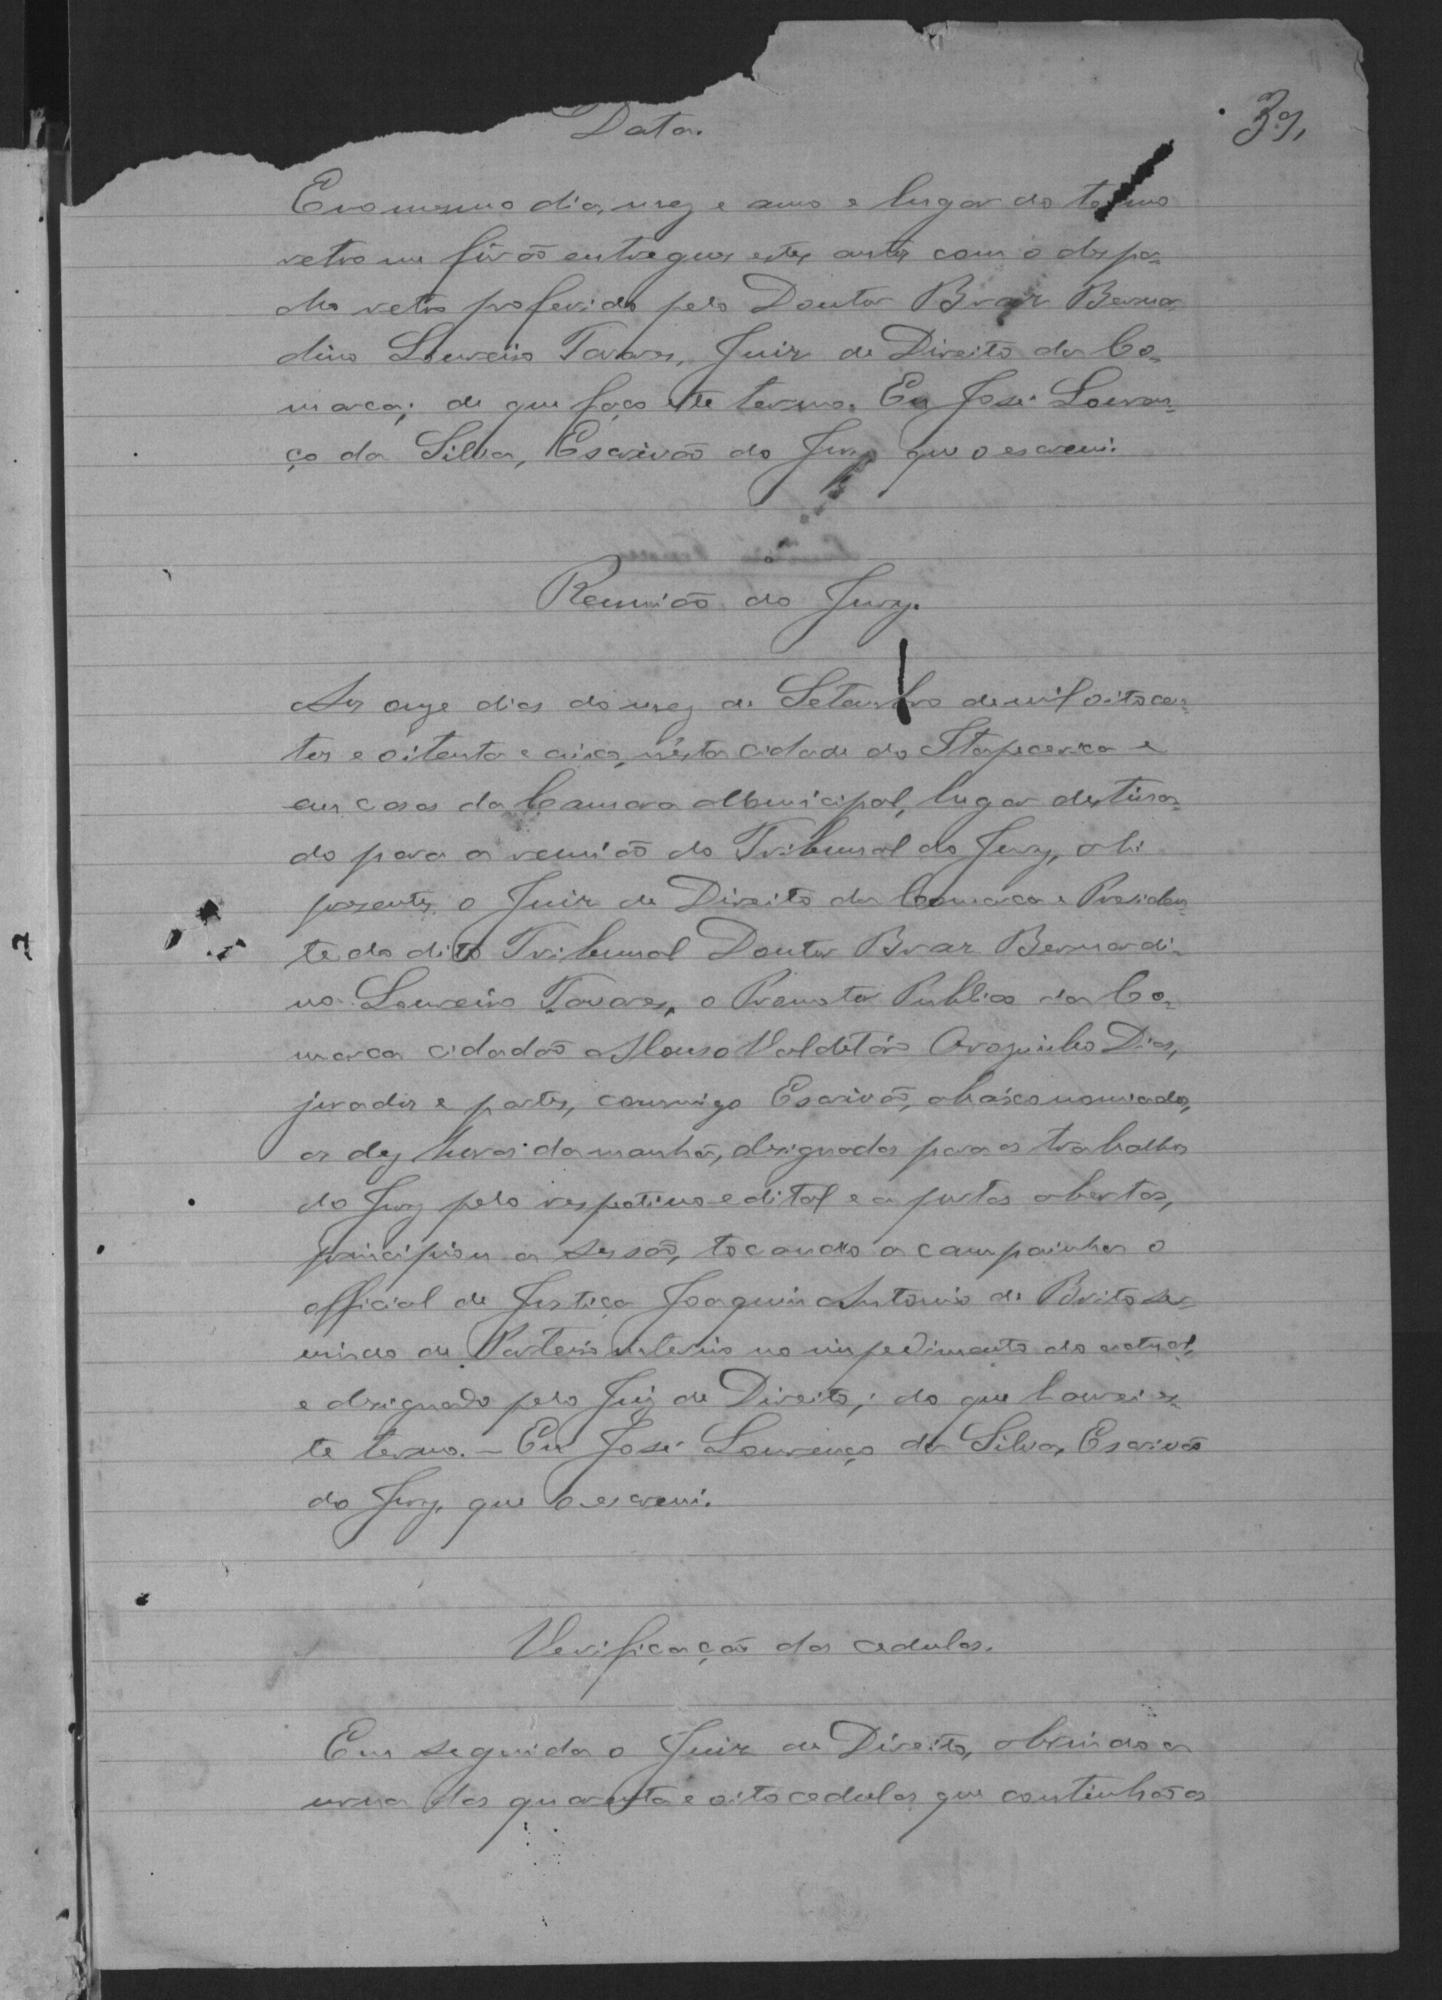 39,
Data.
E no mesmo dia, mez e anno e lugar do termo
retro me fôrão entregues estes autos com o despa-
cho retro proferido pelo Doutor Braz Bernar-
dino Loureiro Tavares, Juiz de Direito da Co-
marca; de que faço este termo. Eu José Louren-
ço da Silva, Escrivão do Jury que o escrevi.
Reunião do Jury.
Aos onze dias do mez de Setembro de mil oitocen-
tos e oitenta e cinco, nésta cidade do Itapecerica e
em casas da Camara Municipal, lugar destina-
do para a reunião do Tribunal do Jury, ahi
presentes o Juiz de Direito da Comarca e Presiden-
te do dito Tribunal Doutor Braz Bernardi-
no Loureiro Tavares, o Promotor Publico da Co-
marca cidadão Afonso Dias,
jurados e partes, commigo Escrivão, abaixo nomiado,
as dez horas da manhã, designadas para os trabalhos
do Jury pelo respetivo edital e a portas abertas,
principiou a sessão, tocando a campainha o
official de Justiça Joaquim Antonio de Brito ser-
vindo de Porteiro interino no impedimento do actual,
e designado pelo Juiz de Direito; do que lavrei es-
te termo. - Eu José Lourenço da Silva, Escrivão
do Jury, que o escrevi.
Verificação das cedulas.
Em seguida o Juiz de Direito, abrindo a
urna das quarenta e oito cedulas que continhão os